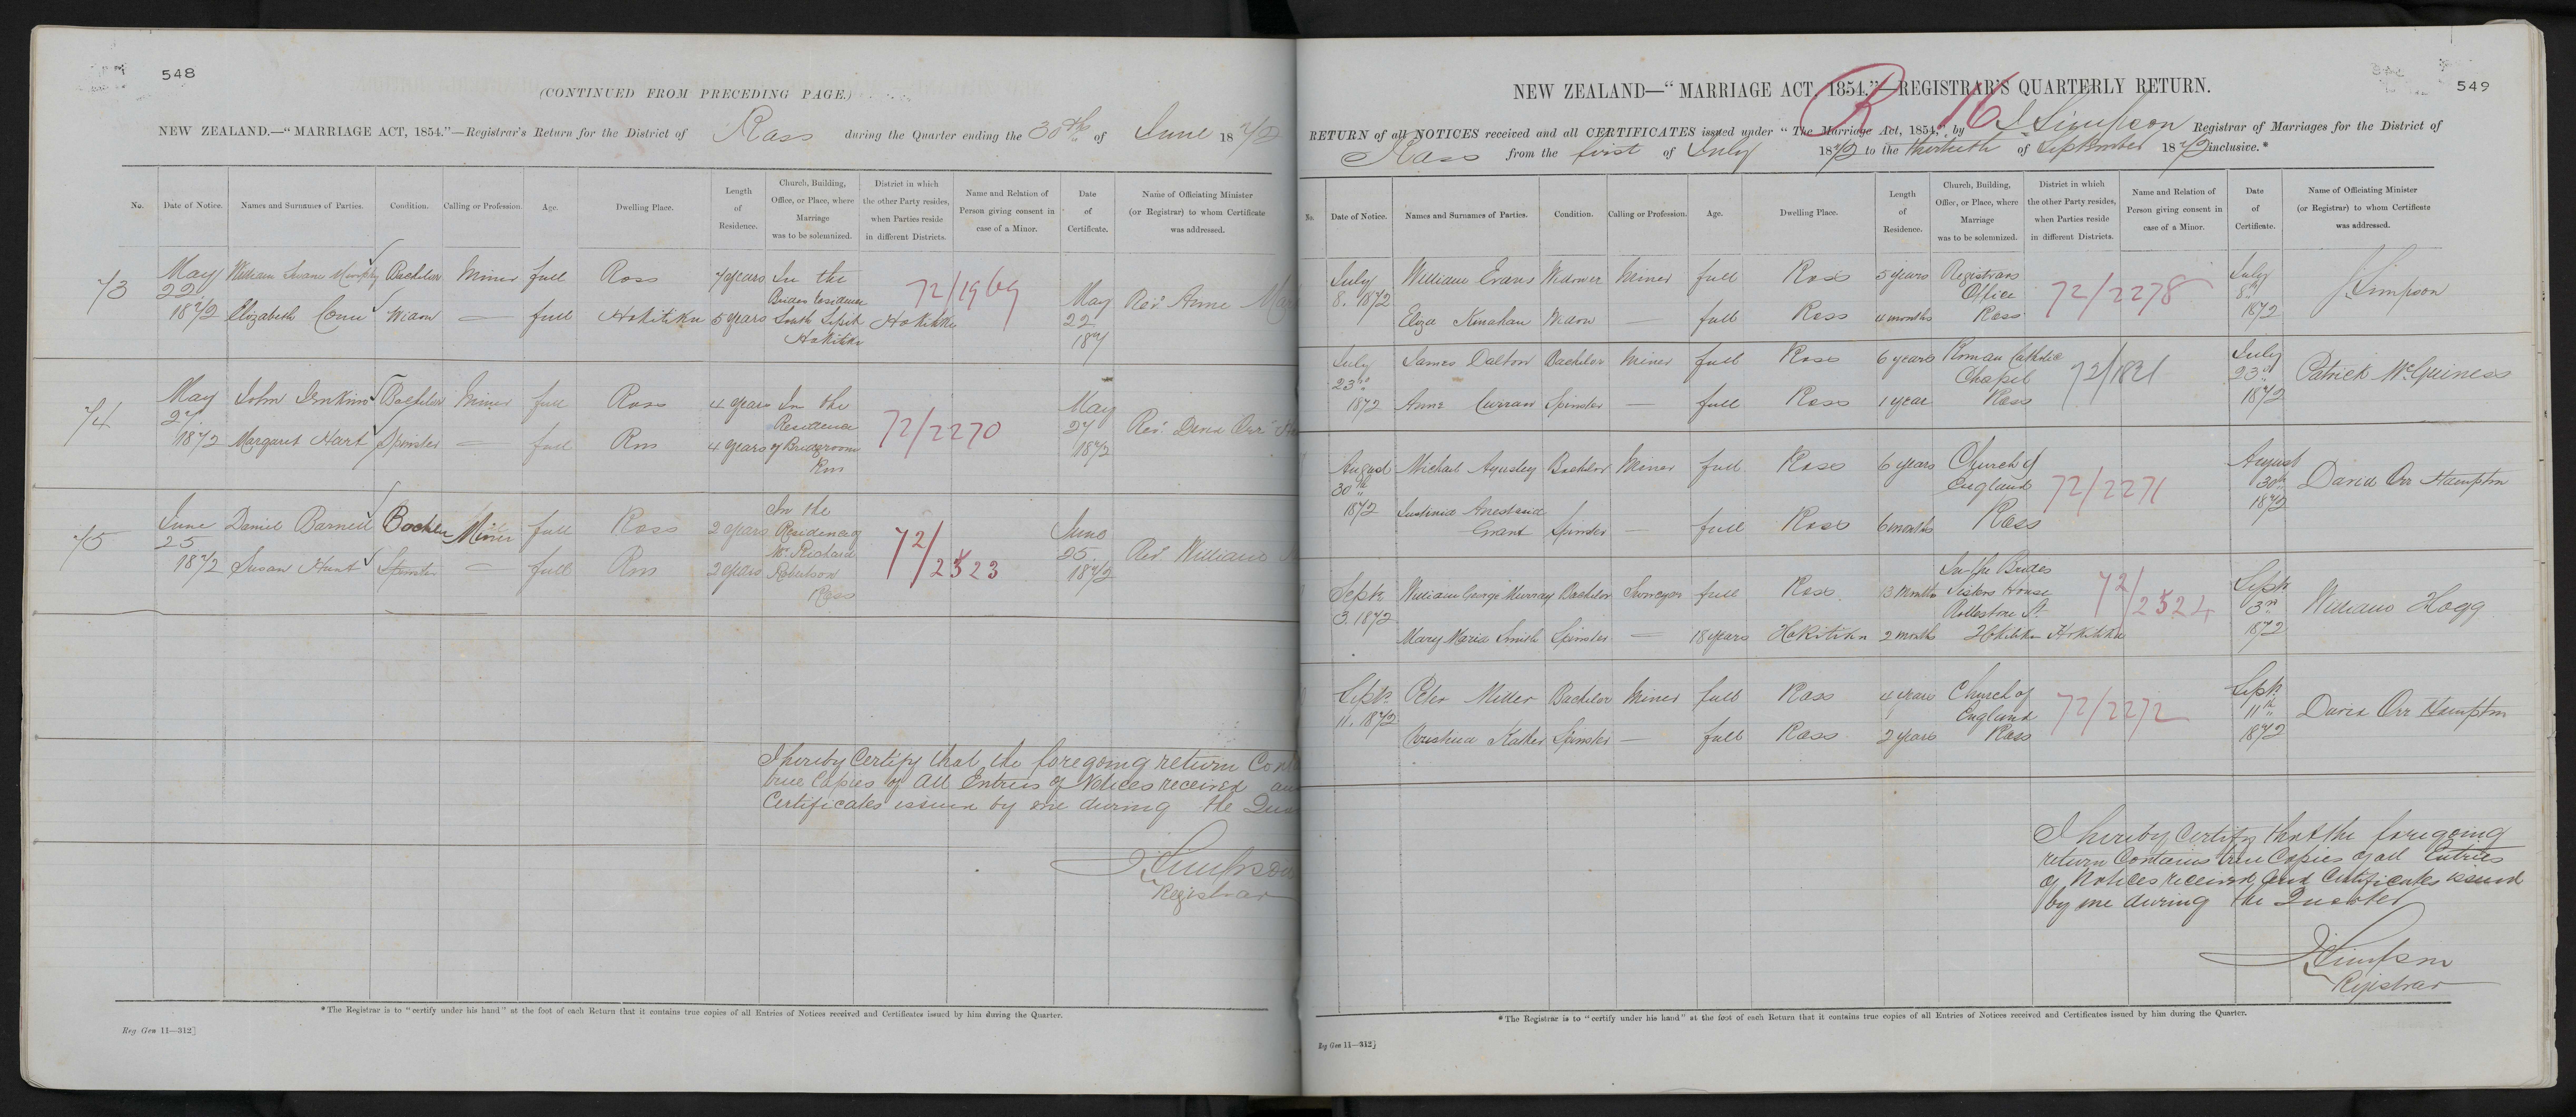 548
(CONTINUED FROM PRECEDING PAGE.)
NEW ZEALAND.—"MARRIAGE ACT, 1854."—Registrar's Return for the District of Ross during the Quarter ending the 30th of June 1872
No.
Date of Notice.
Names and Surnames of Parties.
Condition.
Calling or Profession.
Age.
Dwelling Place.
Length of Residence.
Church, Building, Office, or Place, where Marriage was to be solemnized.
District in which the other Party resides, when Parties reside in different Districts.
Name and Relation of Person giving consent in case of a Minor.
Date of Certificate.
Name of Officiating Minister (or Registrar) to whom Certificate was addressed.
73 May 22 1872 William Murphy Bachelor Miner full Ross 7 years In the Brides Residence South Spit Hokitika 72/1969 May 22 Rev. Anne
Elizabeth Widow — full Hokitika 5 years Hokitika
74 May 27 1872 John Jenkins Bachelor Miner full Ross 4 years In the Residence of Bridegroom Ross 72/2270 May 27 1872 Rev. David Orr
Margaret Hart Spinster — full Ross 4 years
75 June 25 1872 Daniel Barnett Bachelor Miner full Ross 2 years In the Residence of Mr. Richard Robertson Ross 72/2523 June 25 1872 Rev. William
Susan Hunt Spinster — full Ross 2 years
I hereby Certify that the foregoing return
true Copies of all Entries of Notices received
Certificates issued by me during the
J Simpson
Registrar
*The Registrar is to "certify under his hand" at the foot of each Return that it contains true copies of all Entries of Notices received and Certificates issued by him during the Quarter.
Reg Gen 11—312]
549
NEW ZEALAND—"MARRIAGE ACT, 1854."—REGISTRAR'S QUARTERLY RETURN.
R 16
RETURN of all NOTICES received and all CERTIFICATES issued under "The Marriage Act, 1854," by J. Simpson Registrar of Marriages for the District of
Ross from the first of July 1872 to the thirtieth of September 1872 inclusive.*
No.
Date of Notice.
Names and Surnames of Parties.
Condition.
Calling or Profession.
Age.
Dwelling Place.
Length of Residence.
Church, Building, Office, or Place, where Marriage was to be solemnized.
District in which the other Party resides, when Parties reside in different Districts.
Name and Relation of Person giving consent in case of a Minor.
Date of Certificate.
Name of Officiating Minister (or Registrar) to whom Certificate was addressed.
July 8. 1872 William Evans Widower Miner full Ross 5 years Registrars Office Ross 72/2278 July 8th 1872 J Simpson
Eliza Kinahan Widow — full Ross 4 months
July 23rd 1872 James Dalton Bachelor Miner full Ross 6 years Roman Catholic Chapel Ross 72/1821 July 23rd 1872 Patrick McGuiness
Anne Curran Spinster — full Ross 1 year
August 30th 1872 Michael Aynsley Bachelor Miner full Ross 6 years Church of England Ross 72/2271 August 30th 1872 David Orr Hampton
Grant Spinster — full Ross 6 months
Sept 3. 1872 William George Murray Bachelor Surveyor full Ross 13 Months In the Brides Sisters House Rolleston St. Hokitika 72/2524 Sept 3rd 1872 William Hogg
Mary Maria Smith Spinster — 18 years Hokitika 2 months Hokitika
Sept. 11. 1872 Peter Miller Bachelor Miner full Ross 4 years Church of England Ross 72/2272 Sept. 11th 1872 David Orr Hampton
Spinster — full Ross 2 years
I hereby Certify that the foregoing
return Contains true Copies of all Entries
of Notices received and Certificates issued
by me during the Quarter
J Simpson
Registrar
*The Registrar is to "certify under his hand" at the foot of each Return that it contains true copies of all Entries of Notices received and Certificates issued by him during the Quarter.
Reg Gen 11—312]